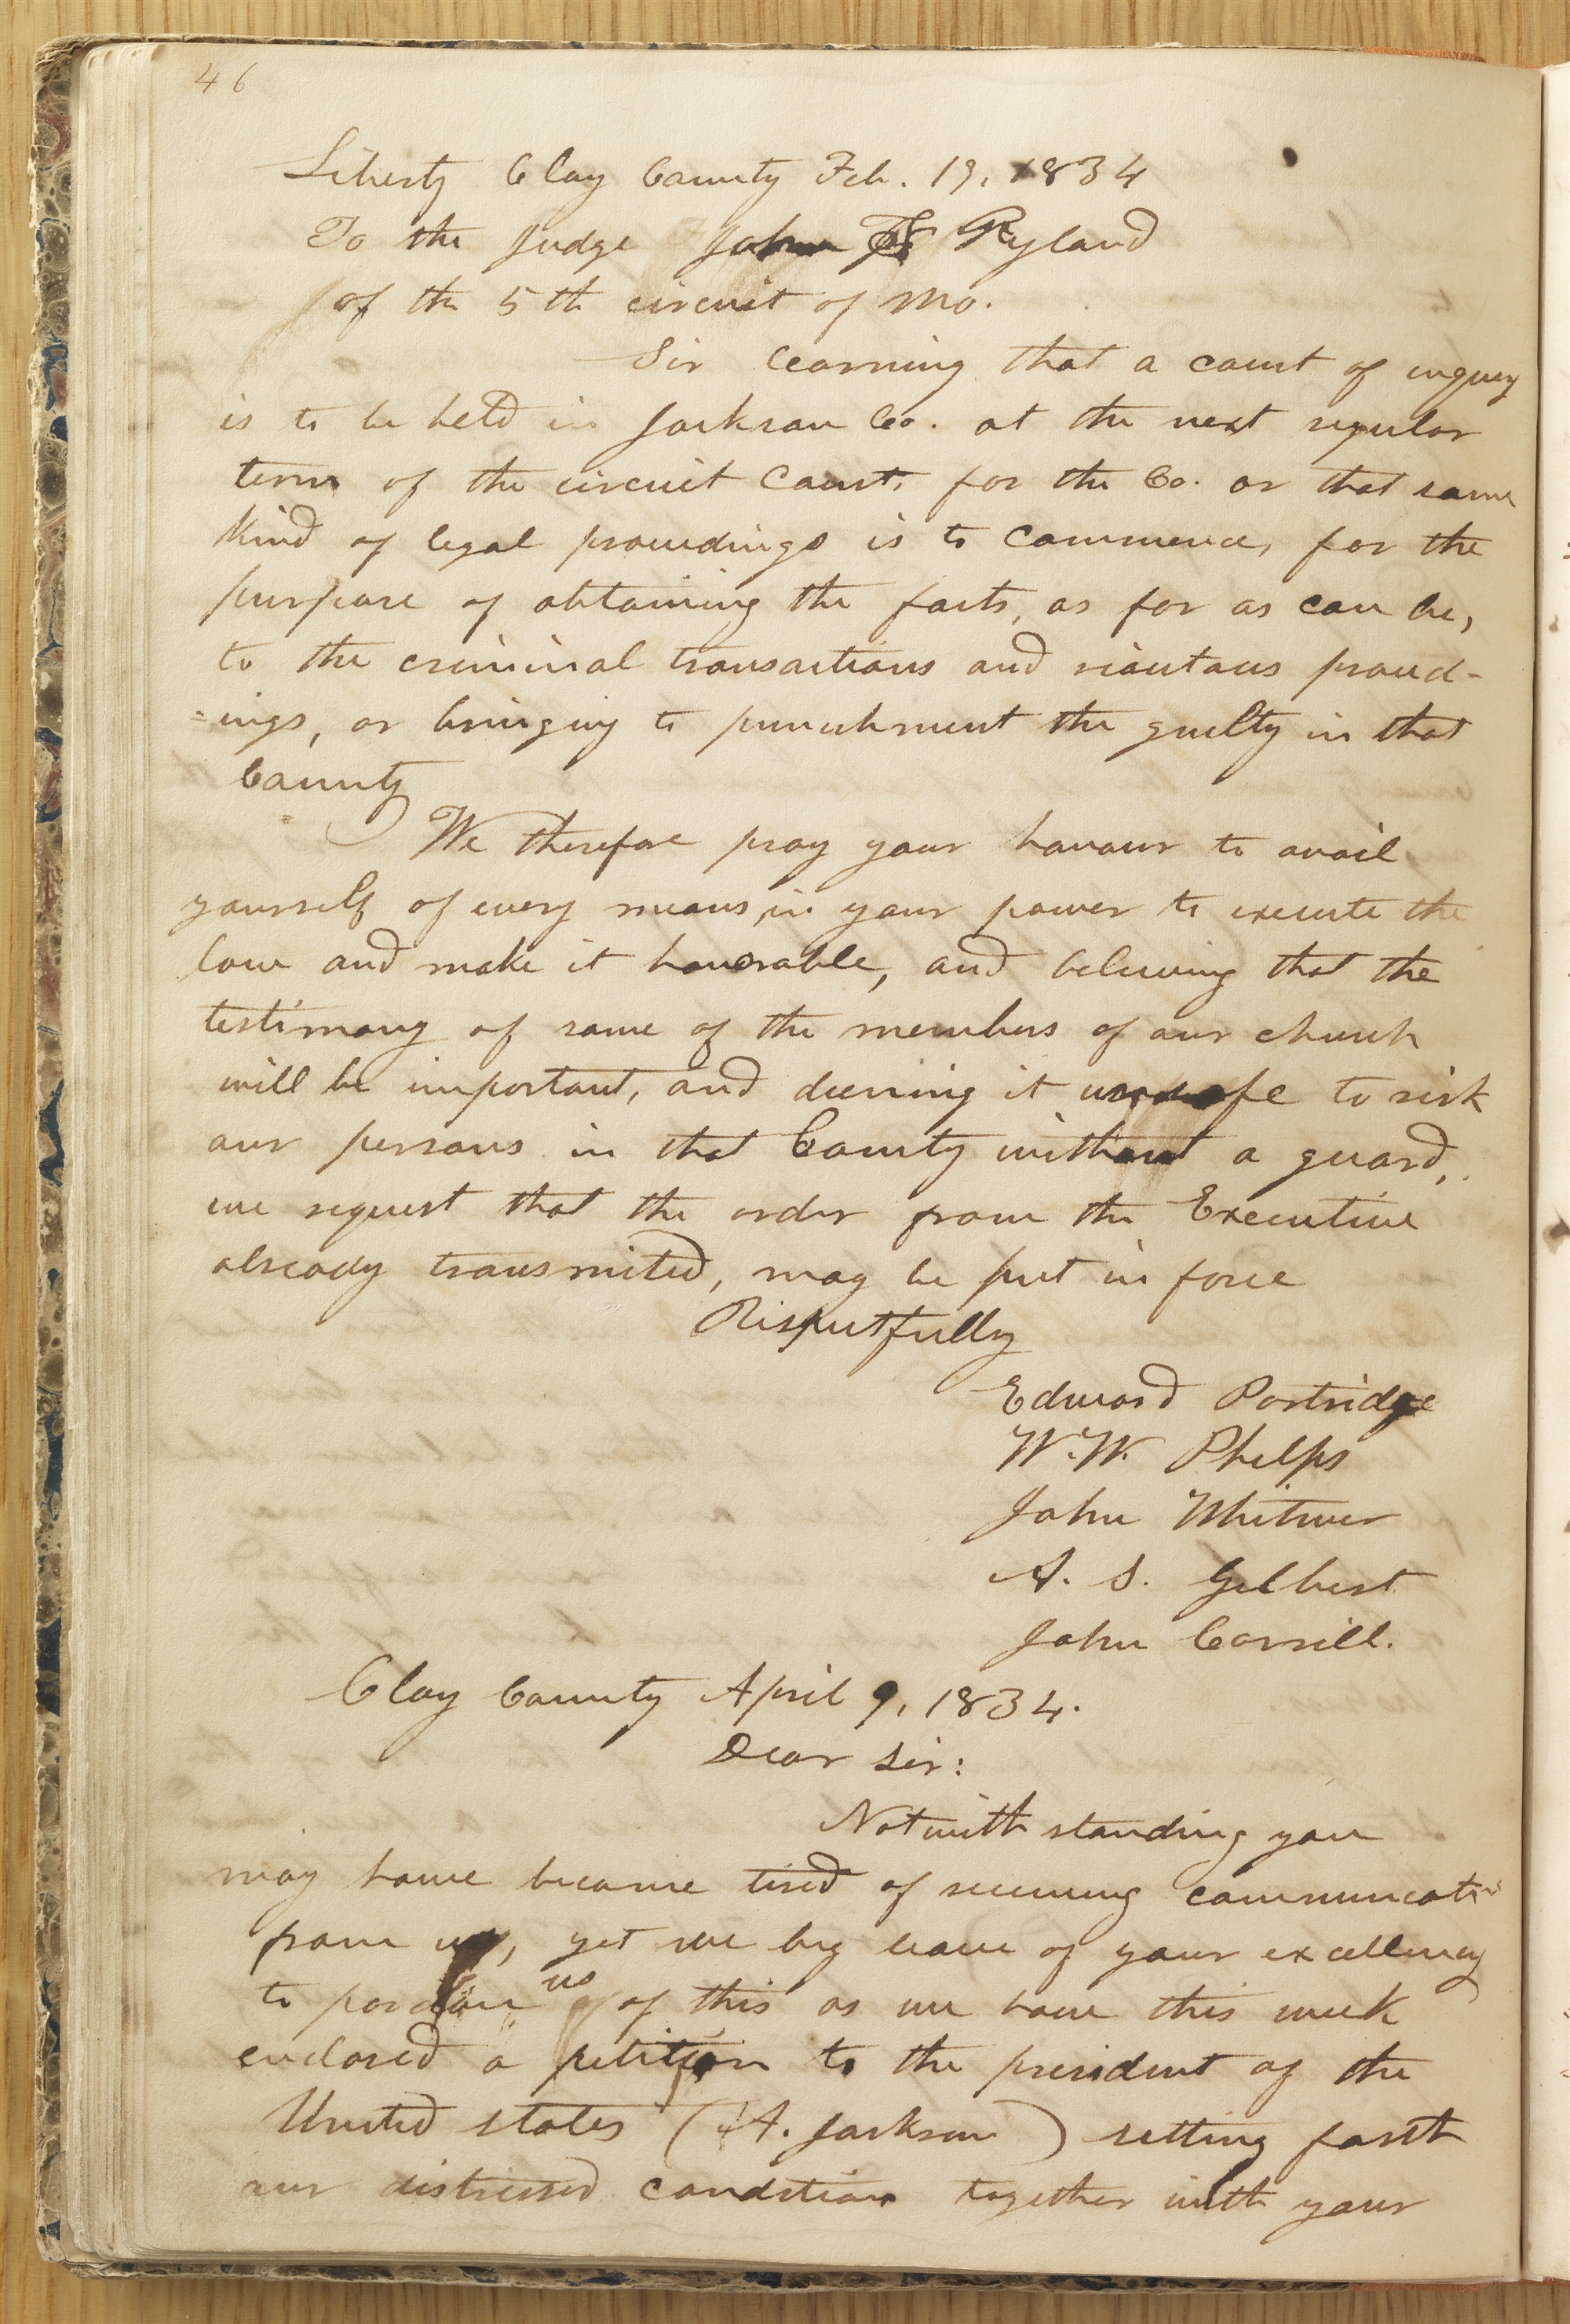 46
Liberty Clay County Feb. 19, 1834
To the Judge John F Ryland
of the 5th circuit of Mo.
Sir learning that a court of inqury
is to be held in Jackson Co. at the next regular
term of the circuit Court, for the Co. or that some
kind of legal proceedings is to commence, for the
purpose of obtaining the facts, as far as can be,
to the criminal transactions and rioutous proceed-
=ings, or bringing to punishment the guilty in that
County
We therefore pray your honour to avail
yourself of every means, in your power to execute the
law and make it honorable, and believing that the
testimony of some of the members of our church
will be important, and deeming it unsafe to risk
our persons in that County without a guard,
we request that the order from the Executive
already transmited, may be put in force
Respectfully
Edward Partridge
W.W. Phelps
John Whitmer
A. S. Gilbert
John Corrill.
Clay County April 9, 1834.
Dear Sir:
Notwith standing you
may have become tired of receiving communications
from us, yet we beg leave of your excellency
to pardon us of this as we have this week
enclosed a petition to the president of the
United states (A. Jackson) setting forth
our distressed condition together with your